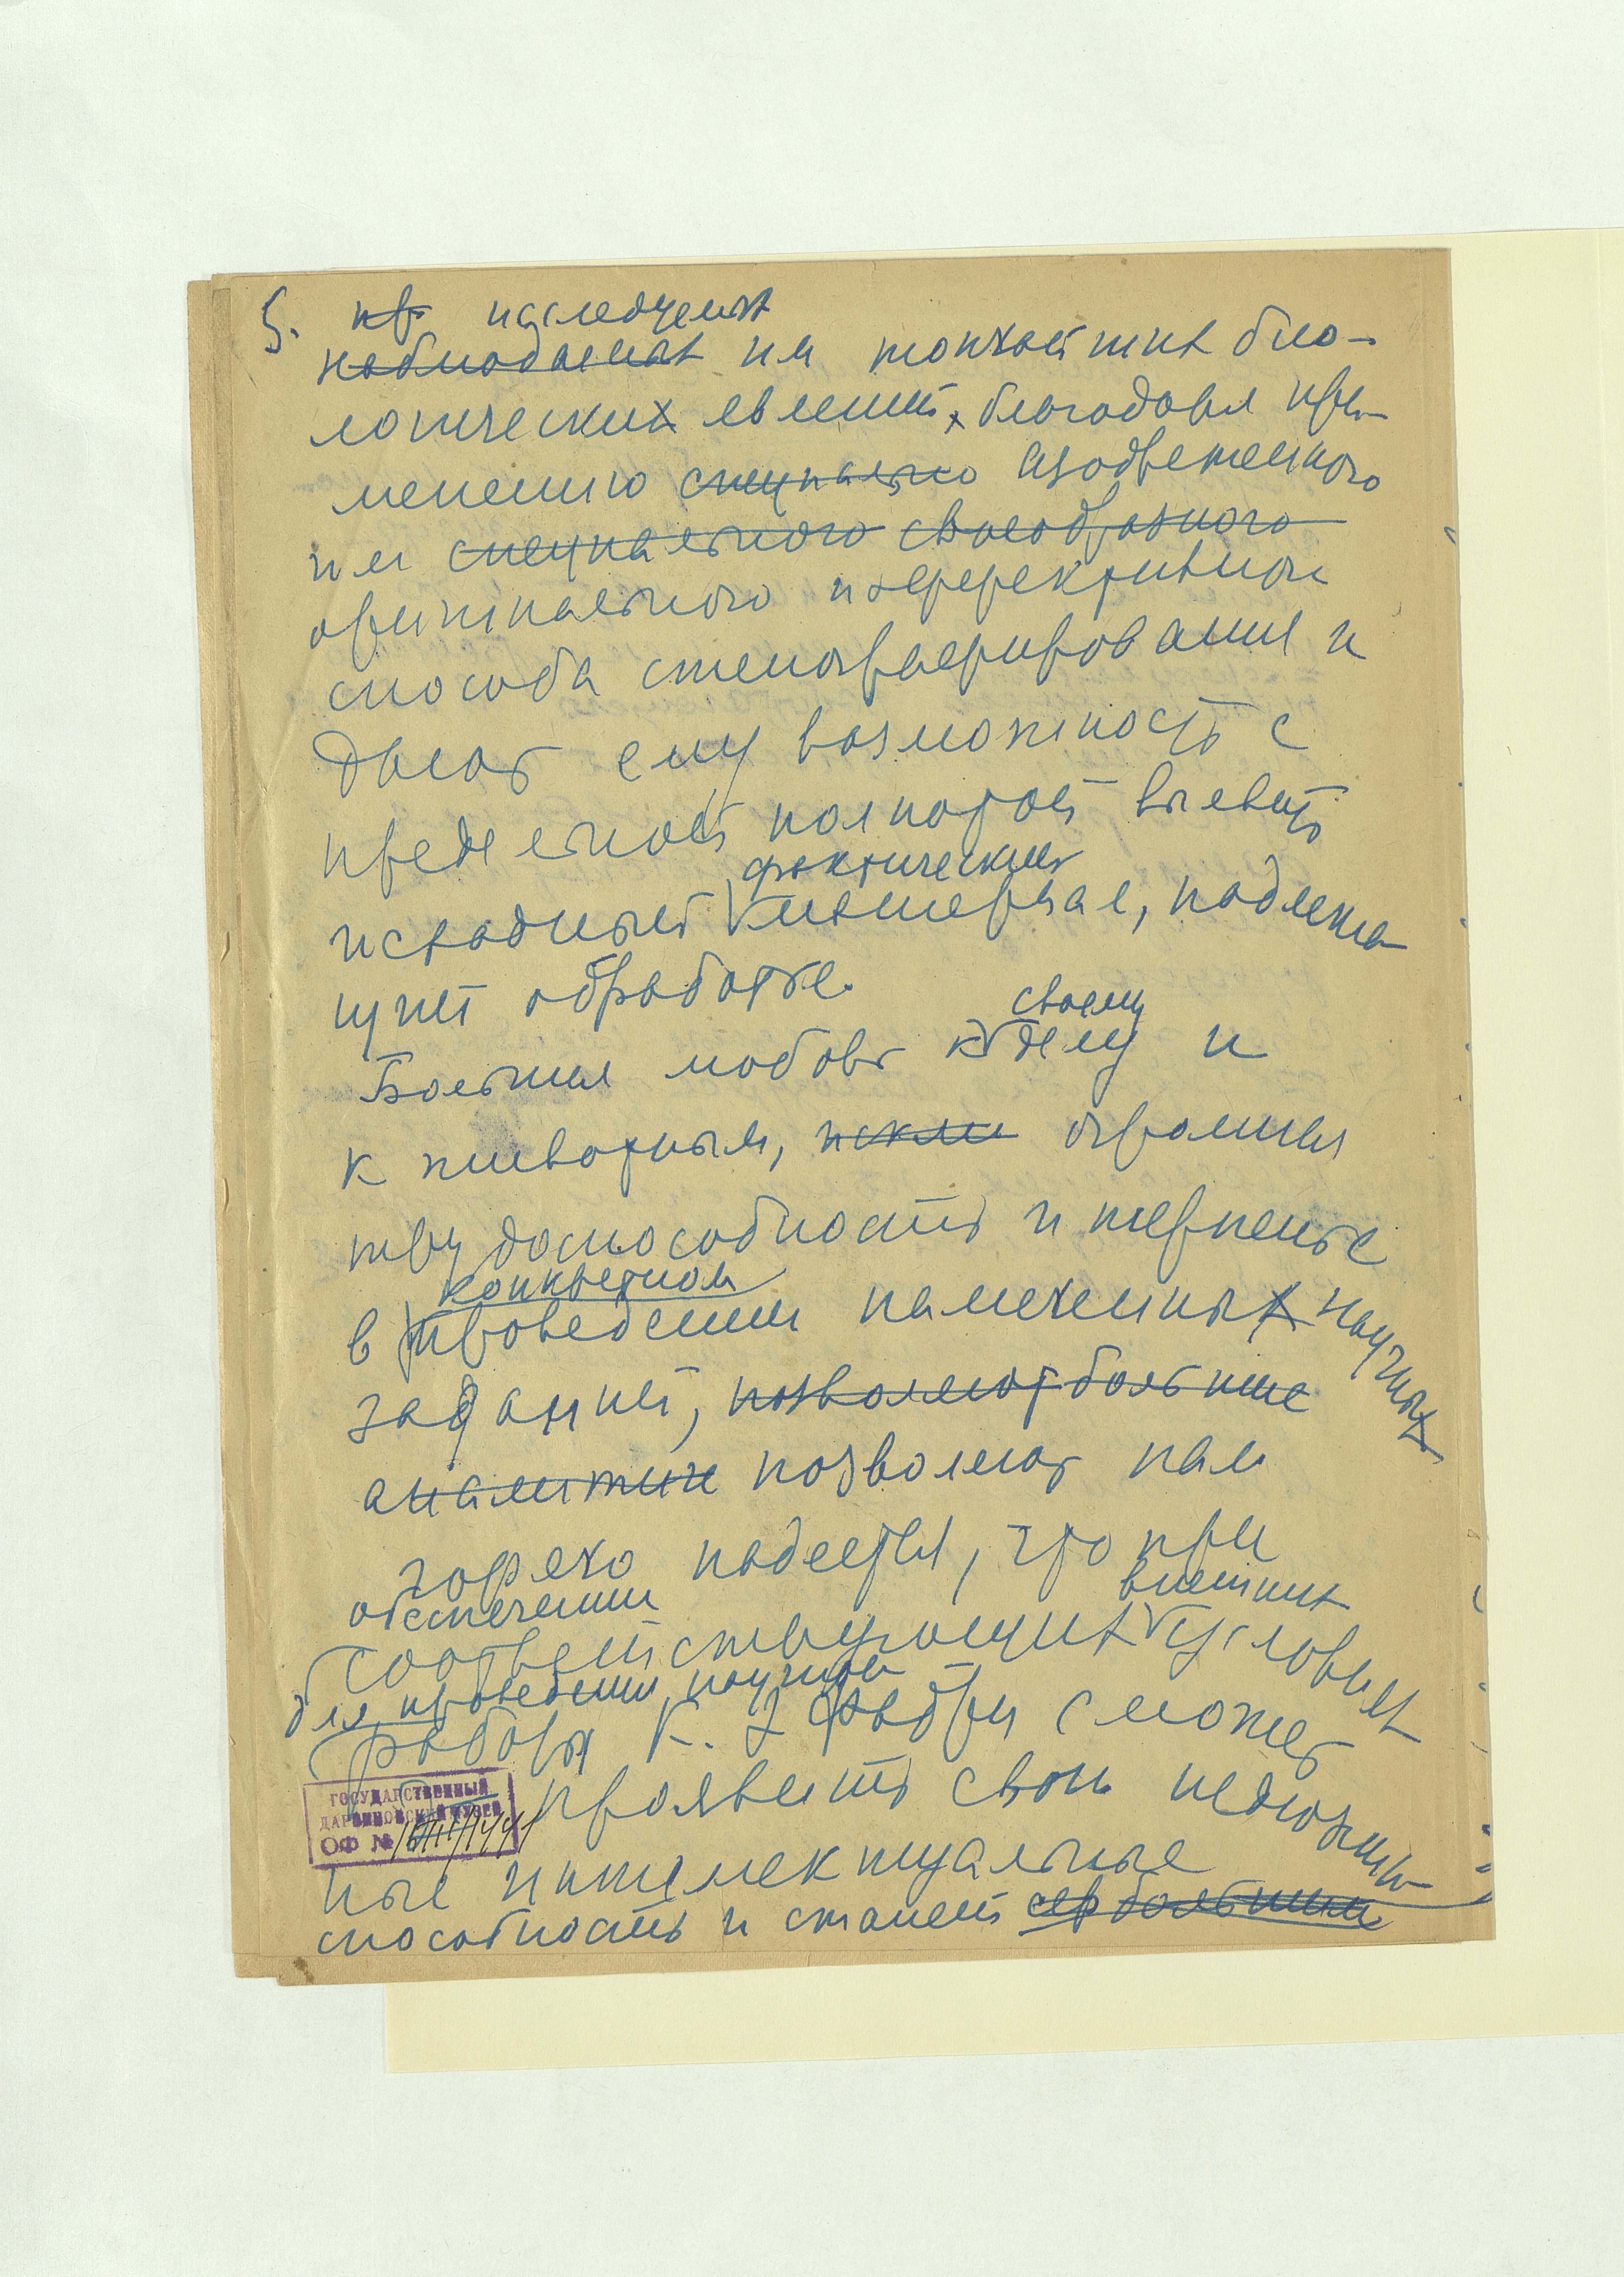 5. исследуемых
наблюдаемых им тончайших био-
логических явлений, благодаря при-
менению специально изобретенного
им специального своеобразного
оригинального и эффективного
способа стенографирования и
дает ему возможность с
предельной полнотой выявить
фактический
исходный материал, подлежа-
щий обработке.
своему
Большая любовь к делу и
к животным, огромная
трудоспособность и терпенье
конкретном
в проведении намеченных научных
заданий, позволяют большие
позволяют нам
горячо надеяться, что при
обеспечении внешних
соответствующих условиях
для проведения научной
работы К. Э Фабри сможет
проявить свои недюжин-
ные интеллектуальные
способность и станет большим
ГОСУДАРСТВЕННЫЙ
ДАРВИНОВСКИЙ МУЗЕЙ
ОФ №